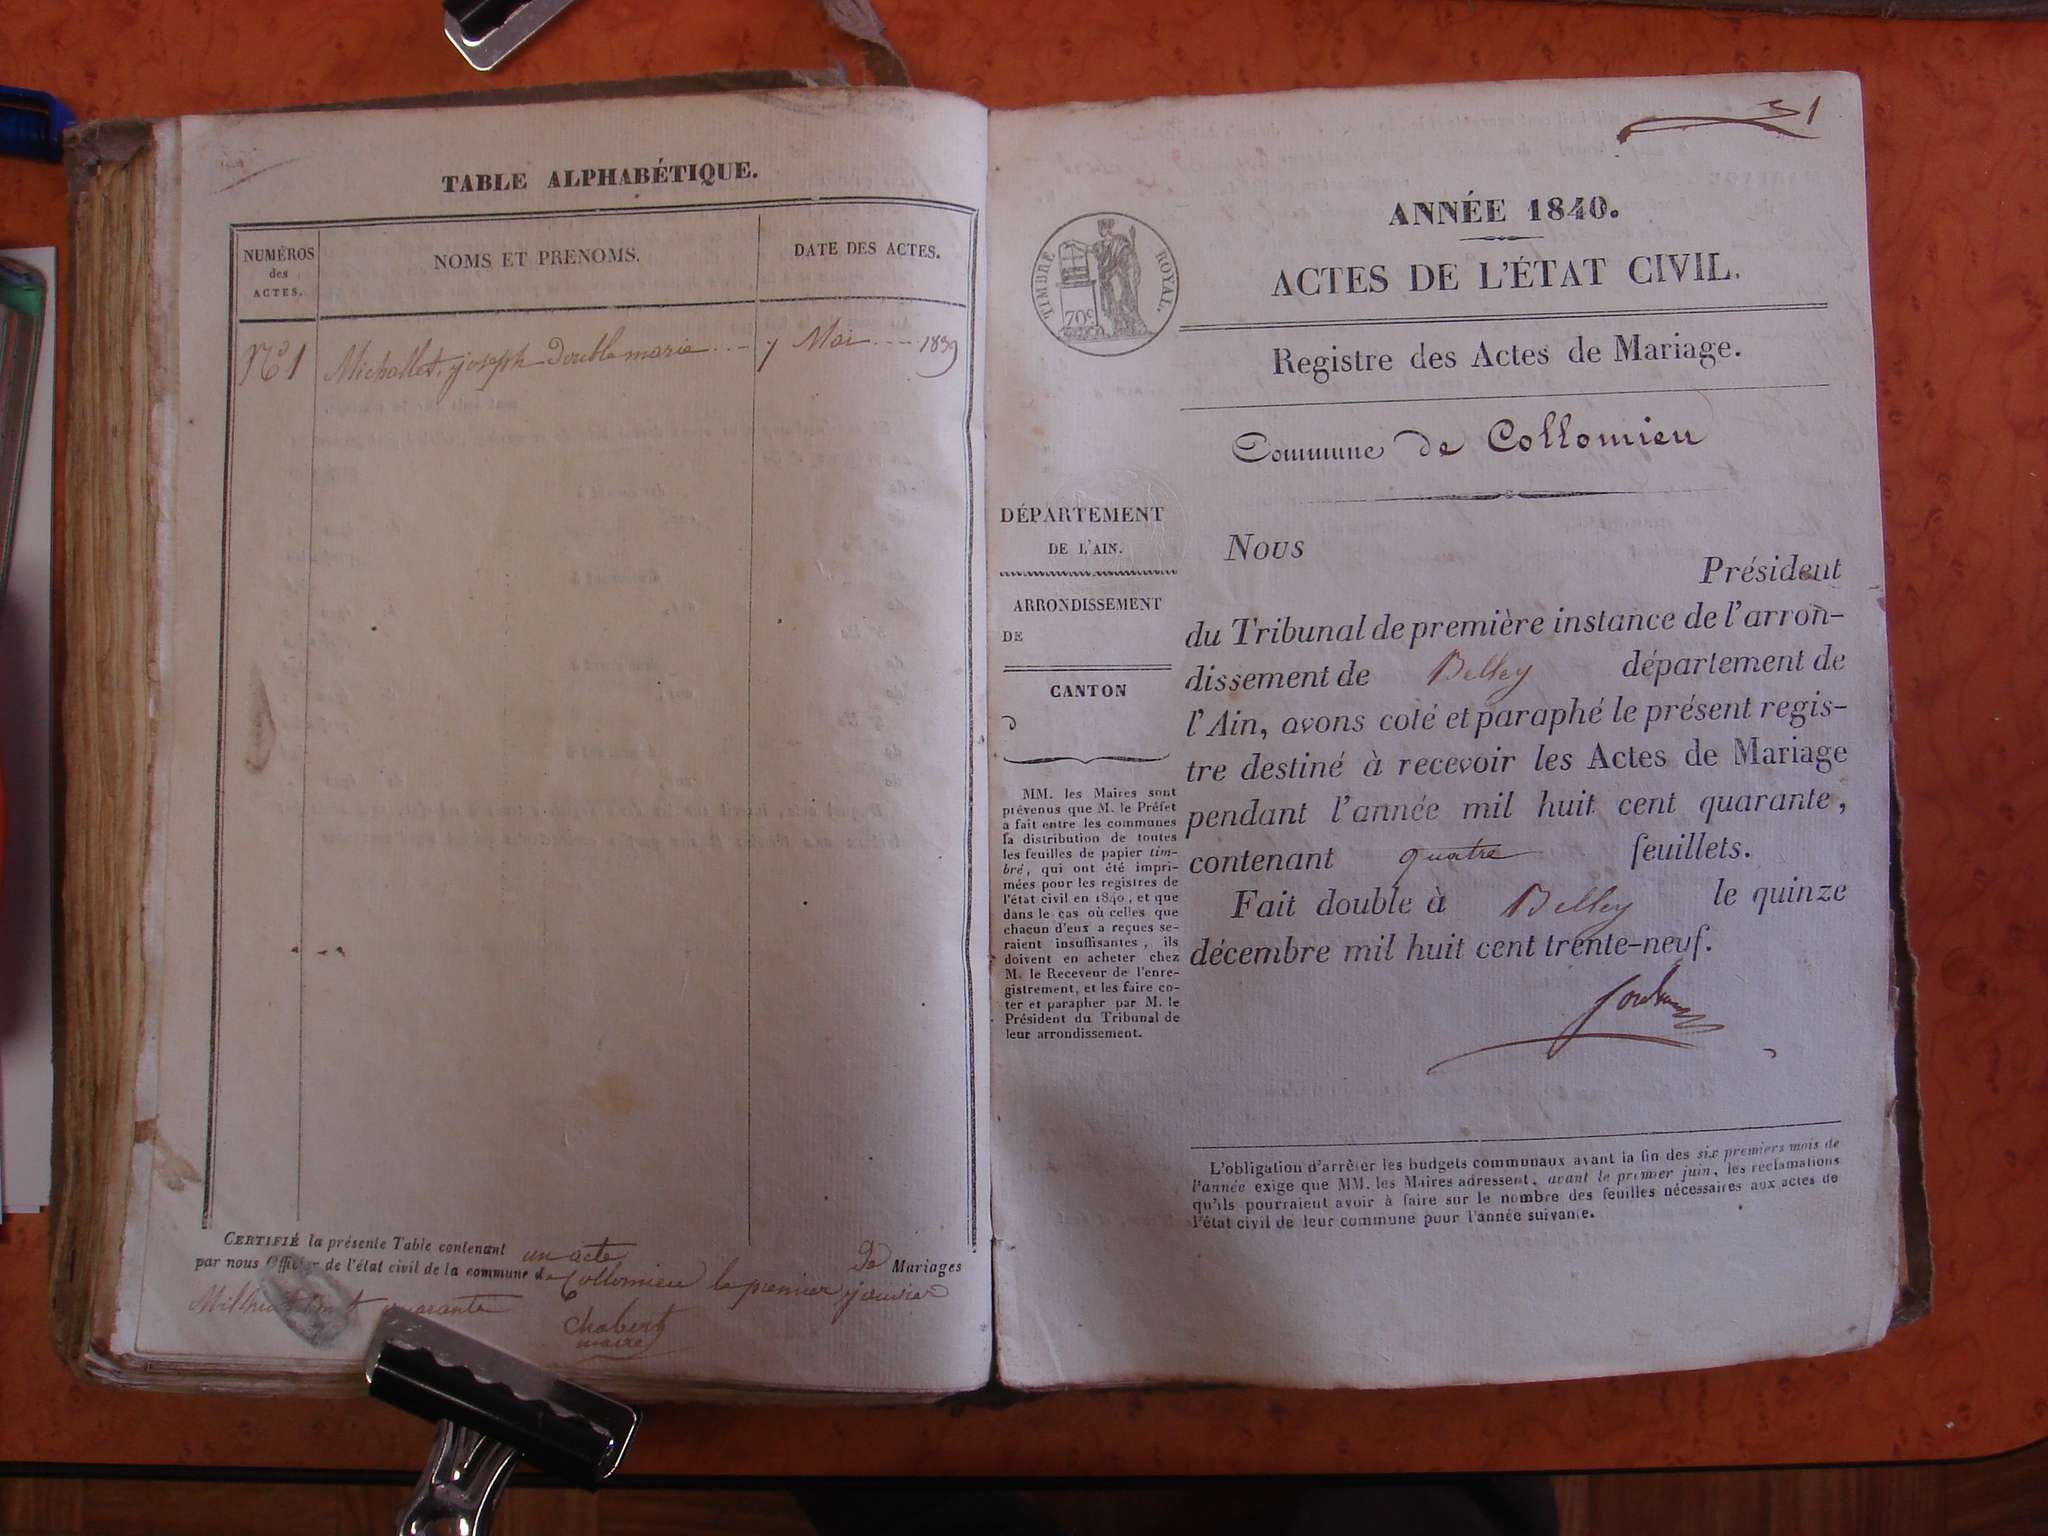 TABLE ALPHABÉTIQUE.
NUMÉROS
des
ACTES.
NOMS ET PRENOMS.
DATE DES ACTES.
N° 1 Michallet joseph Double maria 7 Mai 1839
CERTIFIÉ la présente Table contenant un acte De Mariages
par nous Officier de l'état civil de la commune de Collomieu le premier janvier
Mil huit cent quarante
Chabert
maire
31
ANNÉE 1840.
ACTES DE L'ÉTAT CIVIL.
TIMBRE ROYAL.
70c
Registre des Actes de Mariage.
Commune de Collomieu
DÉPARTEMENT
DE L'AIN.
ARRONDISSEMENT
DE
CANTON
D
MM. les Maires sont
prévenus que M. le Préfet
a fait entre les communes
la distribution de toutes
les feuilles de papier tim-
bré, qui ont été impri-
mées pour les registres de
l'état civil en 1840, et que
dans le cas où celles que
chacun d'eux a reçues se-
raient insuffisantes, ils
doivent en acheter chez
M. le Receveur de l'enre-
gistrement, et les faire co-
ter et parapher par M. le
Président du Tribunal de
leur arrondissement.
Nous
Président
du Tribunal de première instance de l'arron-
dissement de Belley département de
l'Ain, avons coté et paraphé le présent regis-
tre destiné à recevoir les Actes de Mariage
pendant l'année mil huit cent quarante,
contenant quatre feuillets.
Fait double à Belley le quinze
décembre mil huit cent trente-neuf.
L'obligation d'arrêter les budgets communaux avant la fin des six premiers mois de
l'année exige que MM. les Maires adressent, avant le premier juin, les réclamations
qu'ils pourraient avoir à faire sur le nombre des feuilles nécessaires aux actes de
l'état civil de leur commune pour l'année suivante.